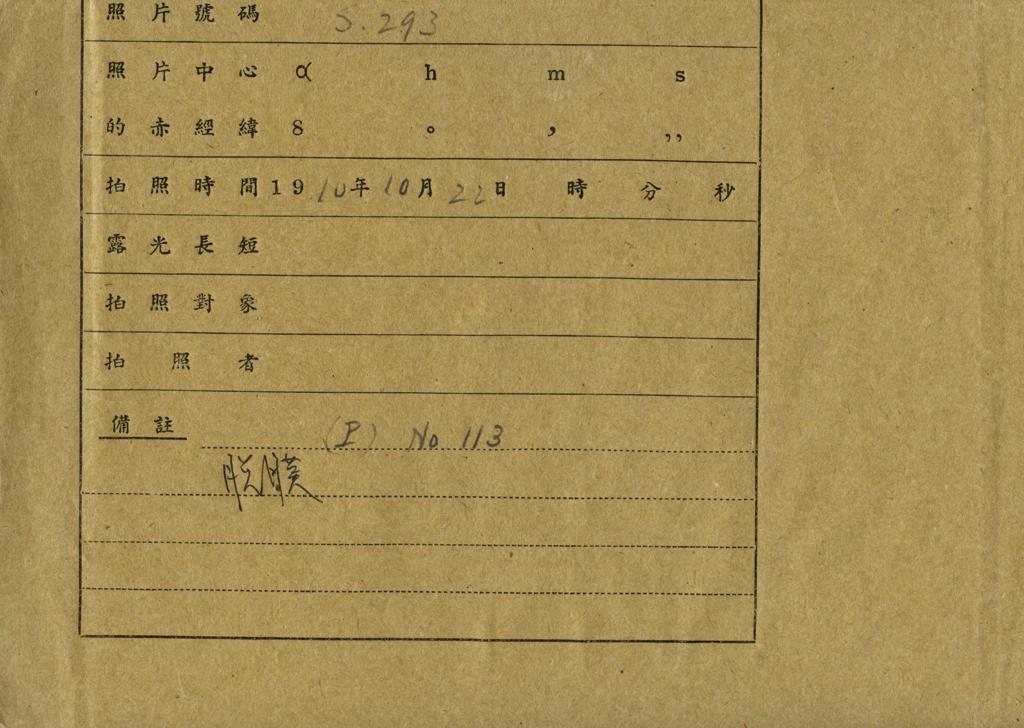 照片號碼 S.293
照片中心 α h m s
的赤經緯 δ ° ′ ″
拍照時間1910年10月22日 時 分 秒
露光長短
拍照對象
拍照者
備註 (P) No 113
脱膜